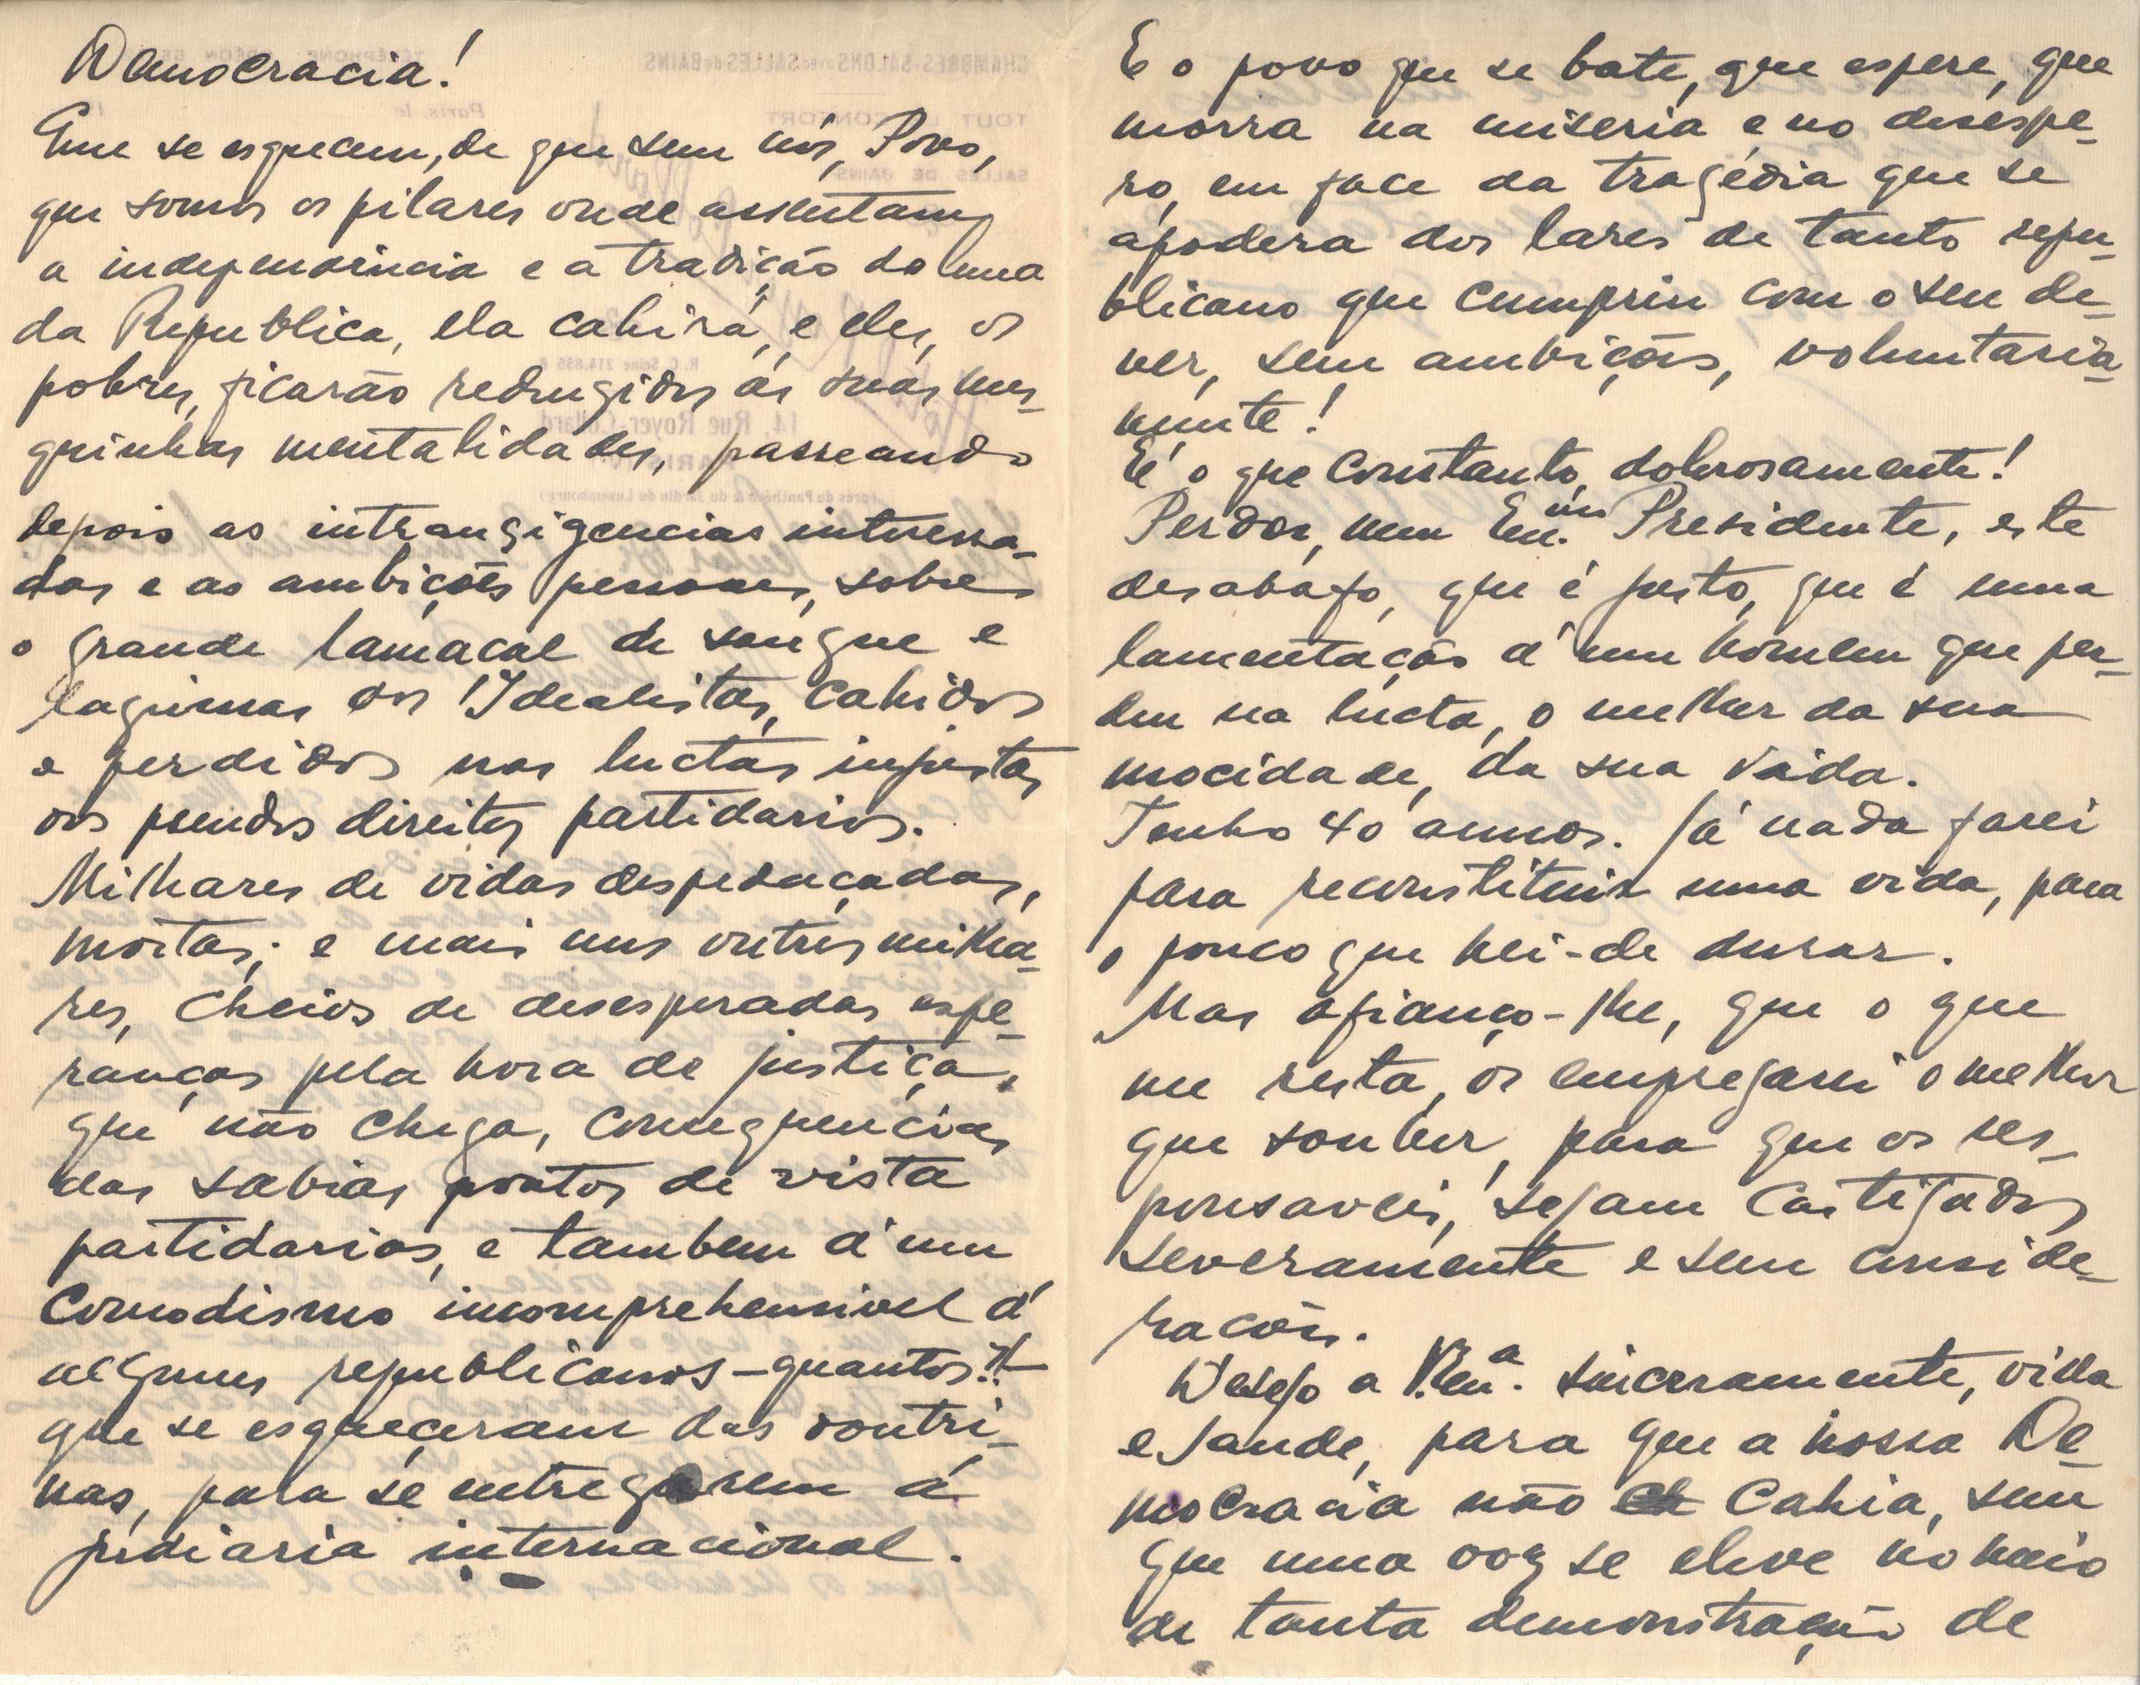 Democracia!
Que se esquecem, de que sem nós, Povo,
que somos os pilares onde assentam
a independencia e a tradição do lema
da Republica, ela cahirá, e eles, os
pobres, ficarão redusgidos ás suas mes-
quinhas mentalidades, passeando
depois as intransigencias interessa-
das e as ambições pessoaes, sobre
o grande lamacal de sangue e
lagrimas dos Idealistas, cahidos
e perdidos nas luctas injustas
dos pseudos direitos partidarios.
Milhares de vidas despedaçadas,
mortas; e mais uns outros milha-
res, cheios de desesperadas espe-
ranças pela hora de justiça,
que não chega, consequencias
das sabias pontos de vista
partidarios, e tambem d'um
comodismo incomprehensivel d'
alguns republicanos - quantos!!
que se esqueceram das doutri-
nas, para se entregarem á
judiaria internacional.
E o povo que se bate, que espere, que
morra na miseria e no desespe-
ro, em face da tragédia que se
apodera dos lares de tanto repu-
blicano que cumpriu com o seu de-
ver, sem ambições, voluntaria-
mente!
É o que constanto, dolorosamente!
Perdoe, meu Exmo. Presidente, este
desabafo, que é justo, que é uma
lamentação d'um homem que per-
deu na lucta, o melhor da sua
mocidade, da sua vida.
Tenho 40 annos. Já nada farei
para reconstituir uma vida, para
o pouco que hei-de durar.
Mas afianço-lhe, que o que
me resta, os empregarei o melhor
que souber, para que os res-
ponsaveis, sejam castigados
severamente e sem conside-
racões.
Desejo a V. Exa. sinceramente, vida
e saude, para que a nossa De-
mocracia não cahia, sem
que uma voz se eleve no meio
de tanta demonstração de